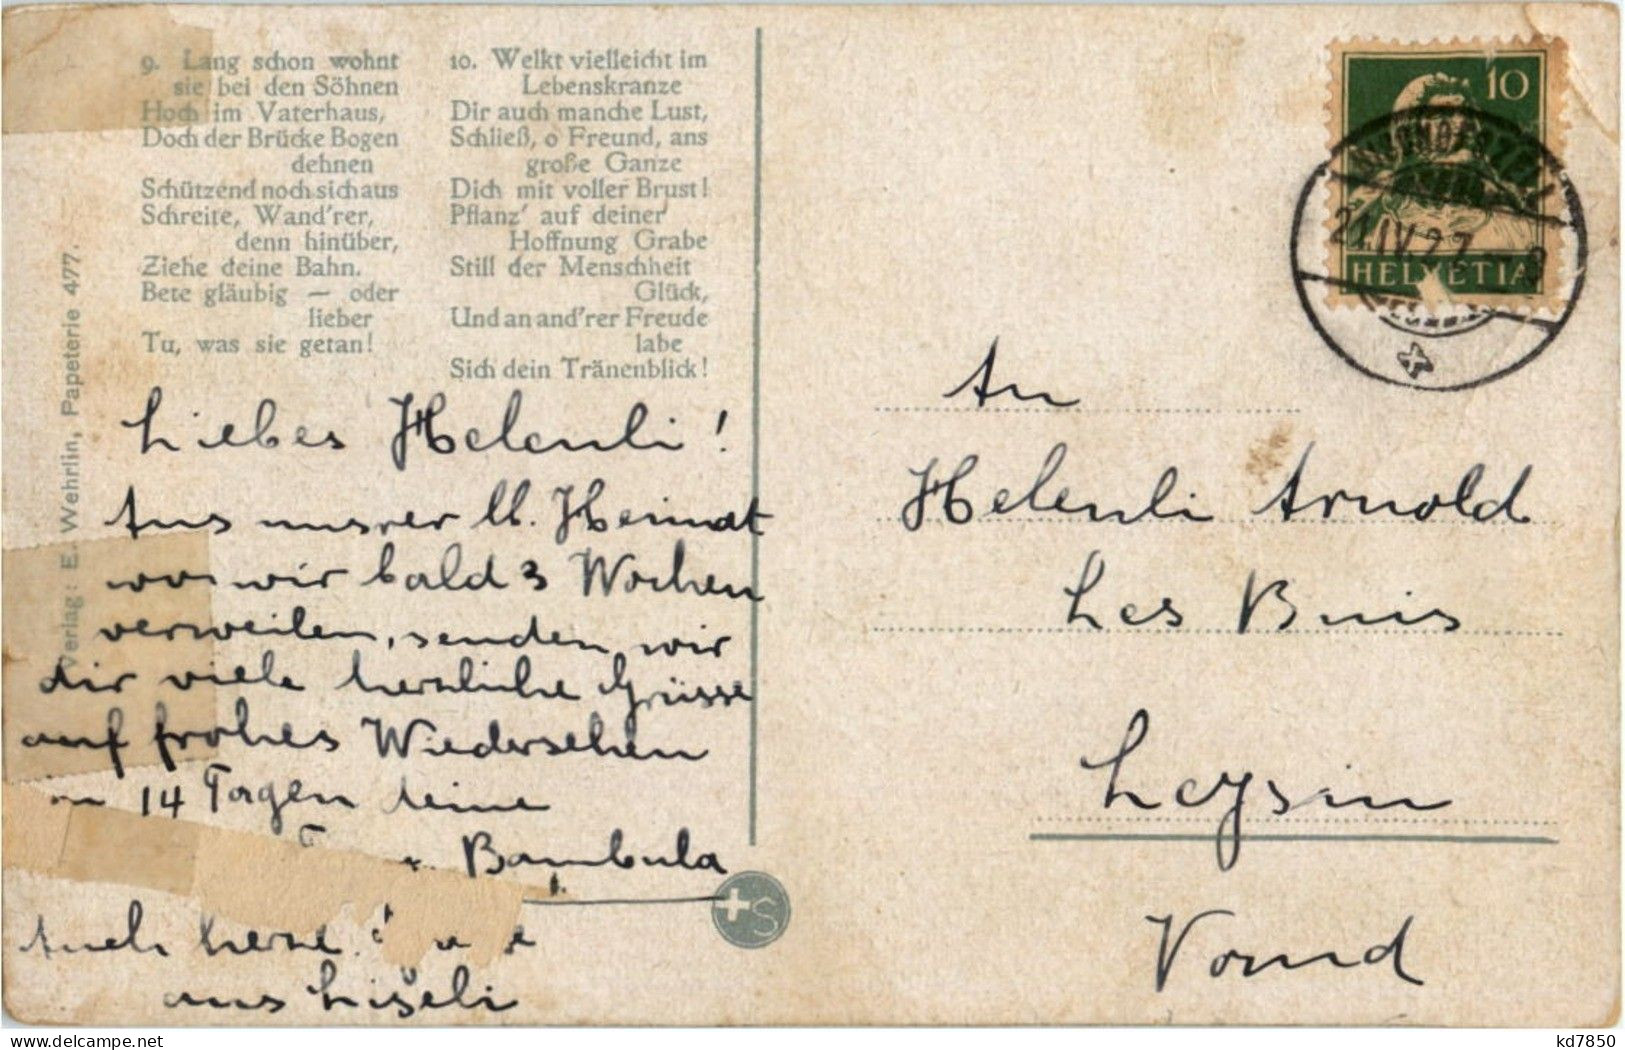 9. Lang schon wohnt
sie bei den Söhnen
Hoch im Vaterhaus,
Doch der Brücke Bogen
dehnen
Schützend noch sich aus
Schreite, Wand'rer,
denn hinüber,
Ziehe deine Bahn.
Bete gläubig — oder
lieber
Tu, was sie getan!
10. Welkt vielleicht im
Lebenskranze
Dir auch manche Lust,
Schließ, o Freund, ans
große Ganze
Dich mit voller Brust!
Pflanz' auf deiner
Hoffnung Grabe
Still der Menschheit
Glück,
Und an and'rer Freude
labe
Sich dein Tränenblick!
Verlag: E. Wehrlin, Papeterie 477.
Liebes Helenli!
Aus unsrer lb. Heimat
wo wir bald 3 Wochen
verweilen, senden wir
dir viele herzliche Grüsse
auf frohes Wiedersehen
in 14 Tagen deine
Bambula
Auch herzl.
aus Liseli
+S
10
HELVETIA
21.IV.27
An
Helenli Arnold
Les Buis
Leysin
Vaud
kd7850